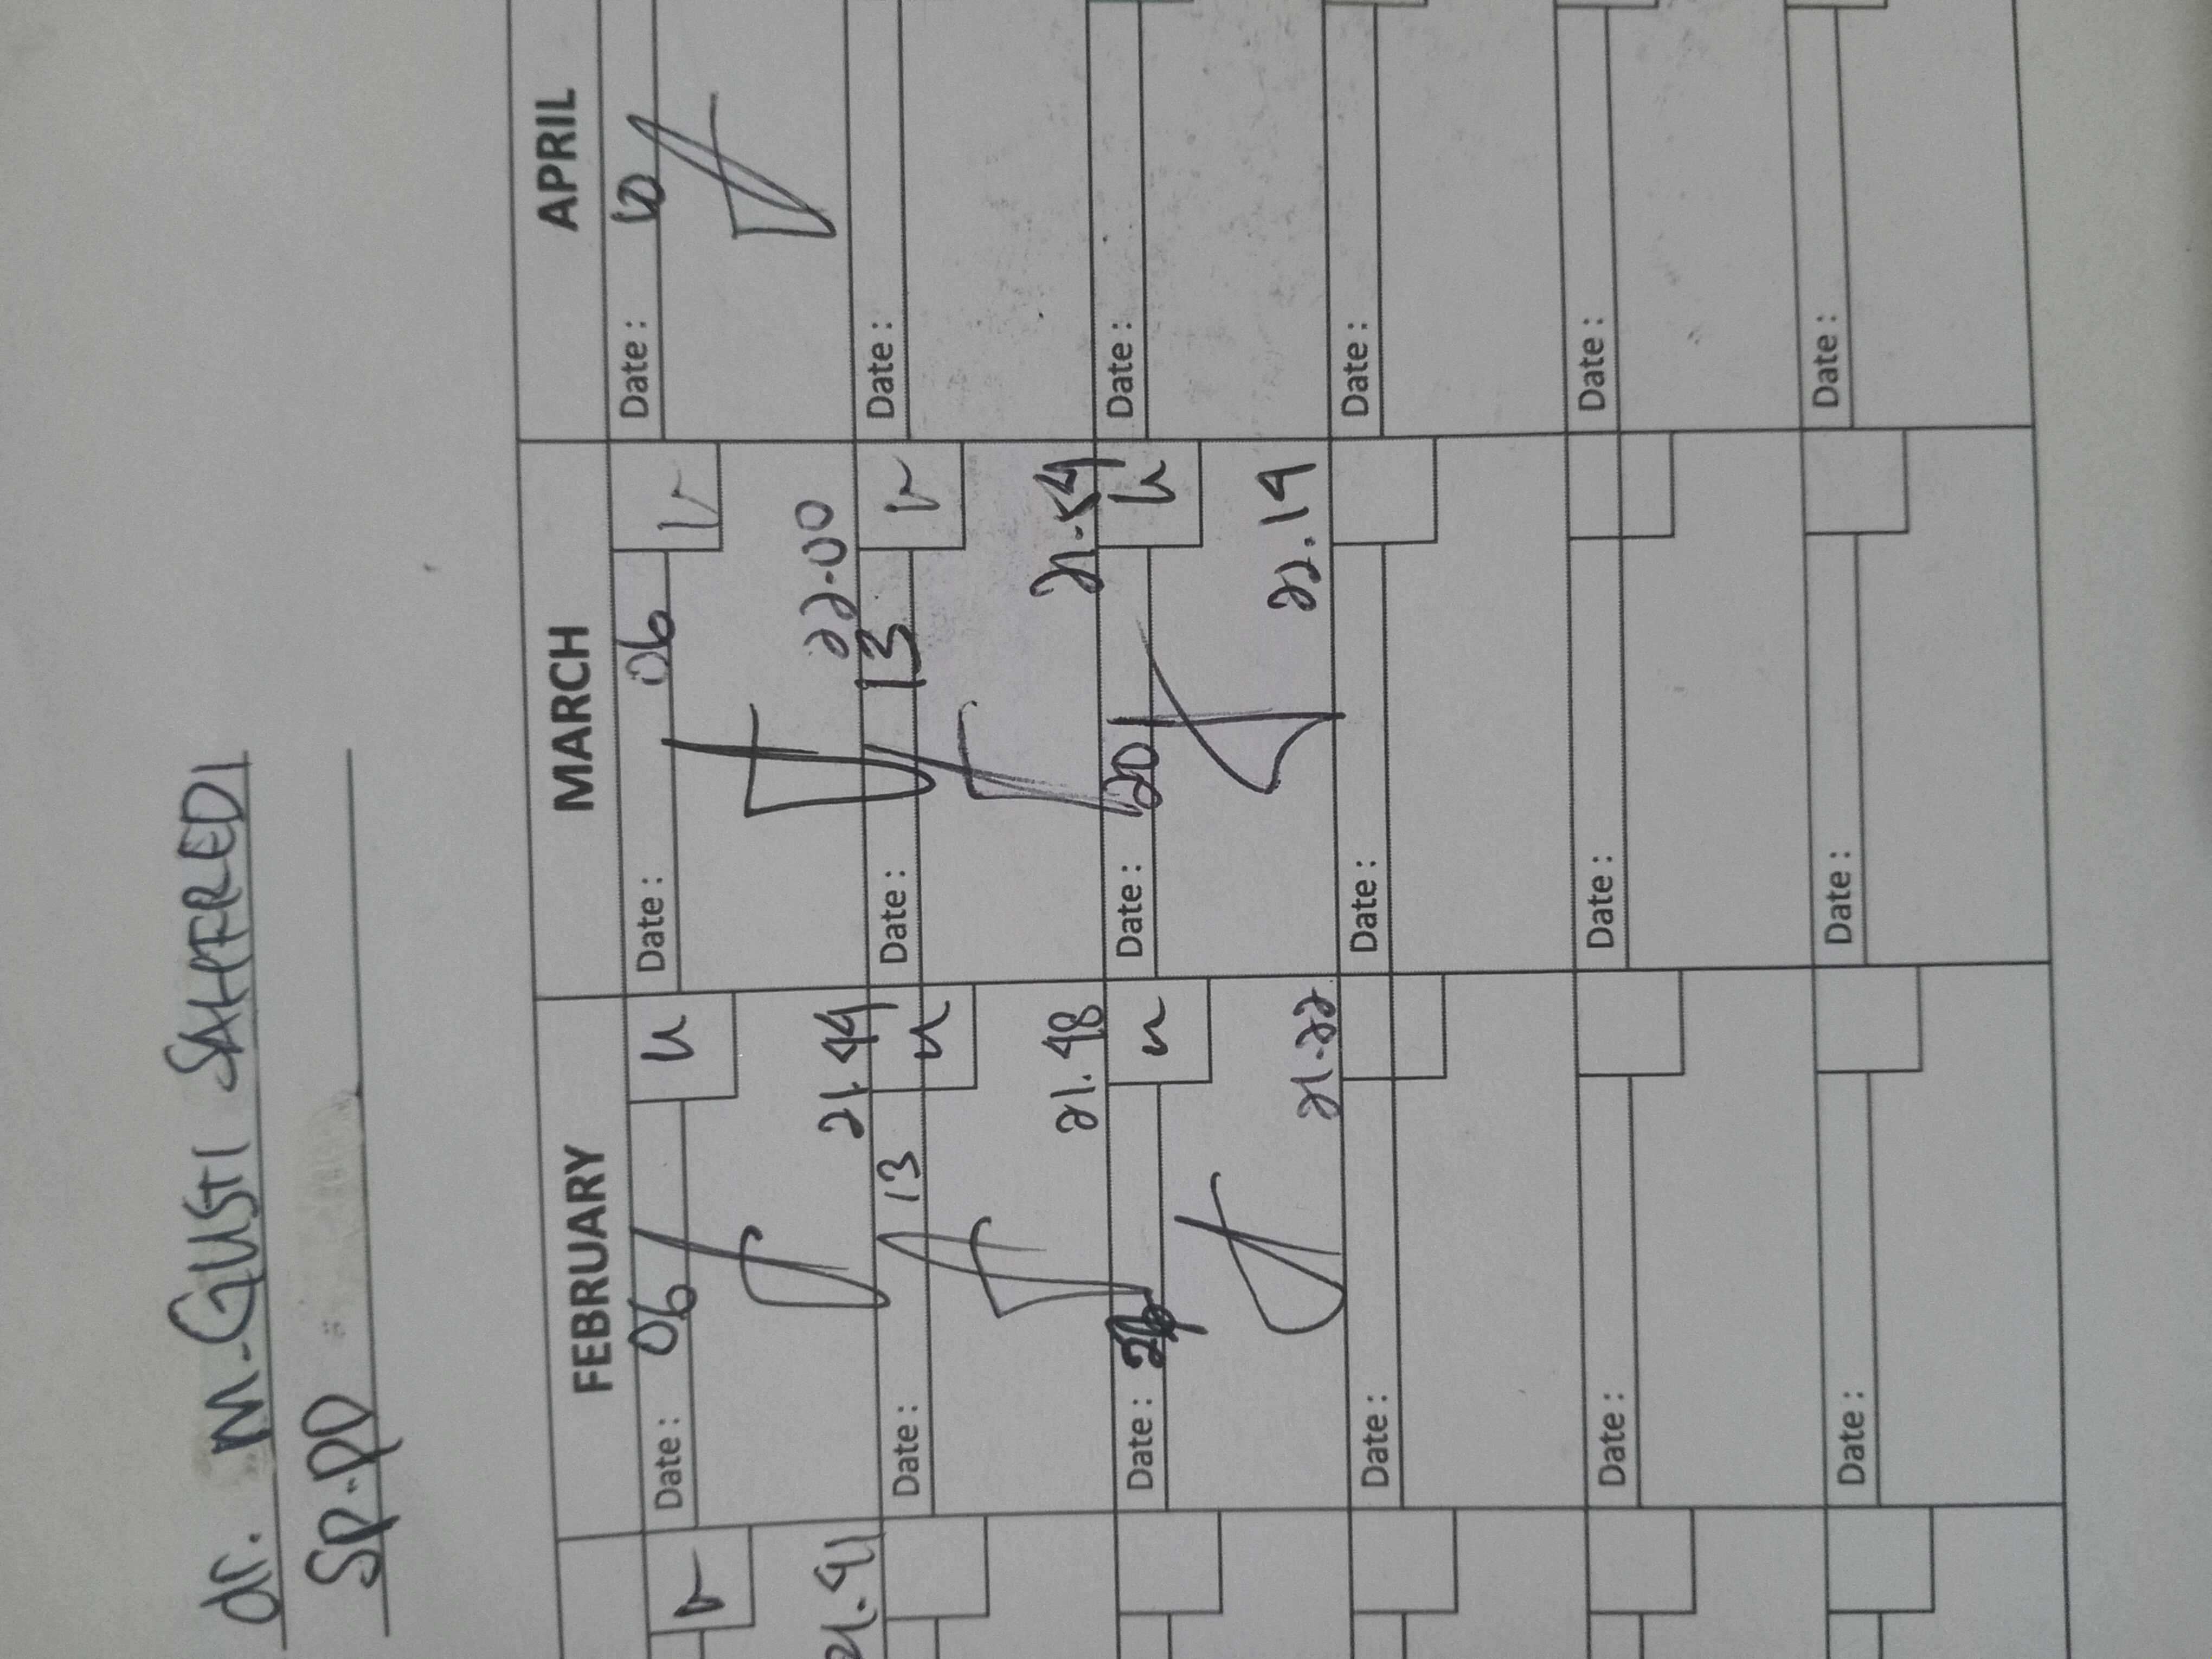 dr. M. GUSTI SAHFREDI
SP.PD
FEBRUARY MARCH APRIL
Date : 06 Date : 06 Date :
21.41 21.44 22.00
Date : 13 Date : 13 Date :
21.48 21.54
Date : Date : 20 Date :
21.22 22.14
Date : Date : Date :
Date : Date : Date :
Date : Date : Date :